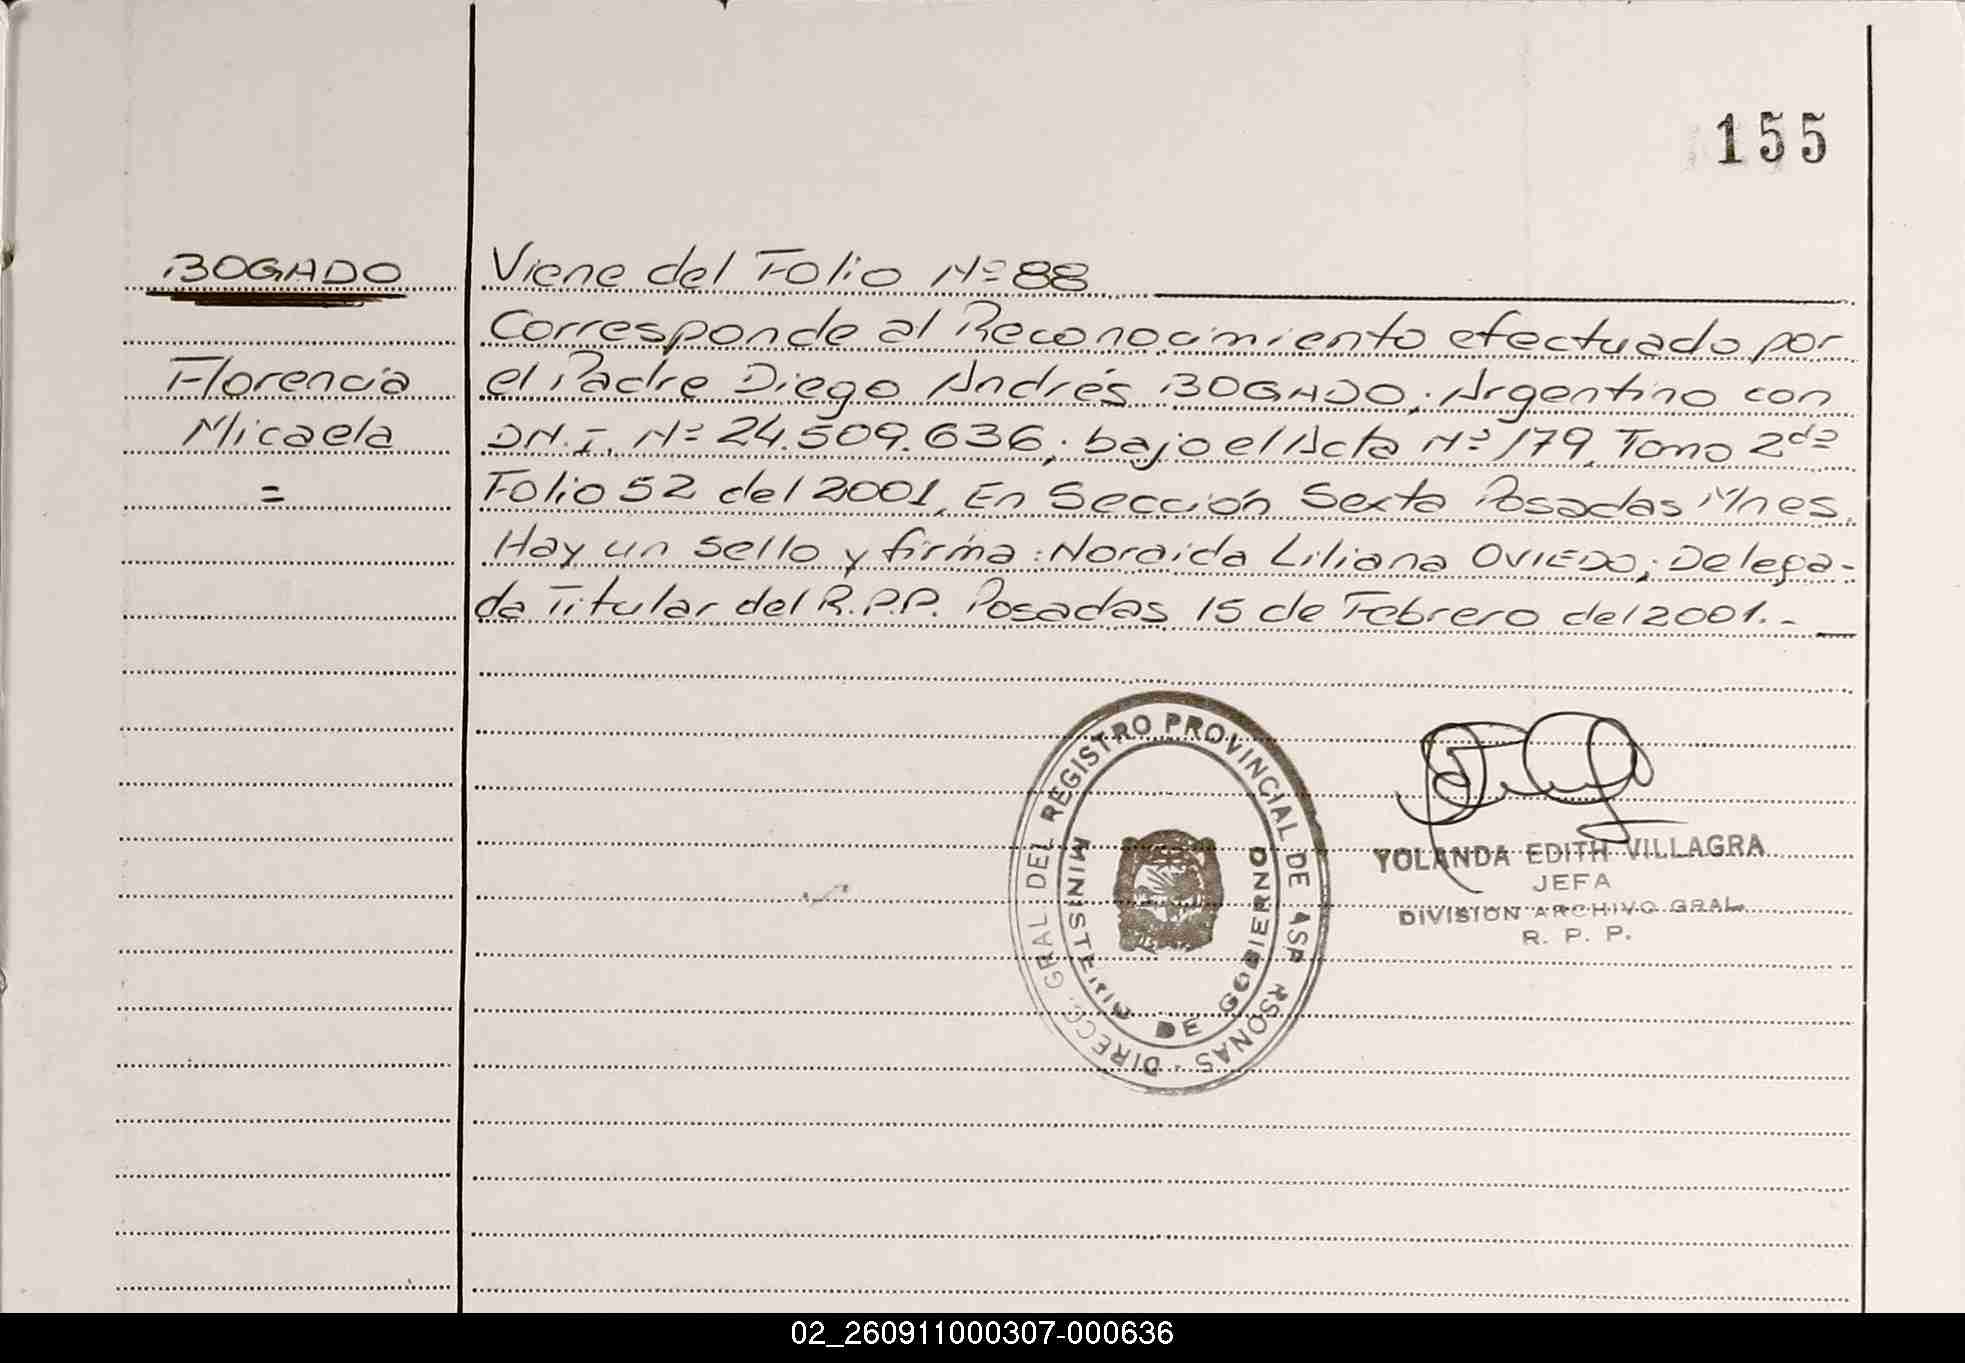 155
BOGADO
Florencia
Micaela
=
Viene del Folio Nº 88
Corresponde al Reconocimiento efectuado por
el Padre Diego Andrés BOGADO; Argentino con
D.N.I. Nº 24.509.636; bajo el Acta Nº 179, Tomo 2do
Folio 52 del 2001, En Sección Sexta Posadas Mnes.
Hay un sello y firma: Noraida Liliana OVIEDO; Delega-
da Titular del R.P.P. Posadas 15 de Febrero del 2001.-
DIRECC. GRAL. DEL REGISTRO PROVINCIAL DE
MINISTERIO DE GOBIERNO
YOLANDA EDITH VILLAGRA
JEFA
DIVISION ARCHIVO GRAL.
R. P. P.
02_260911000307-000636